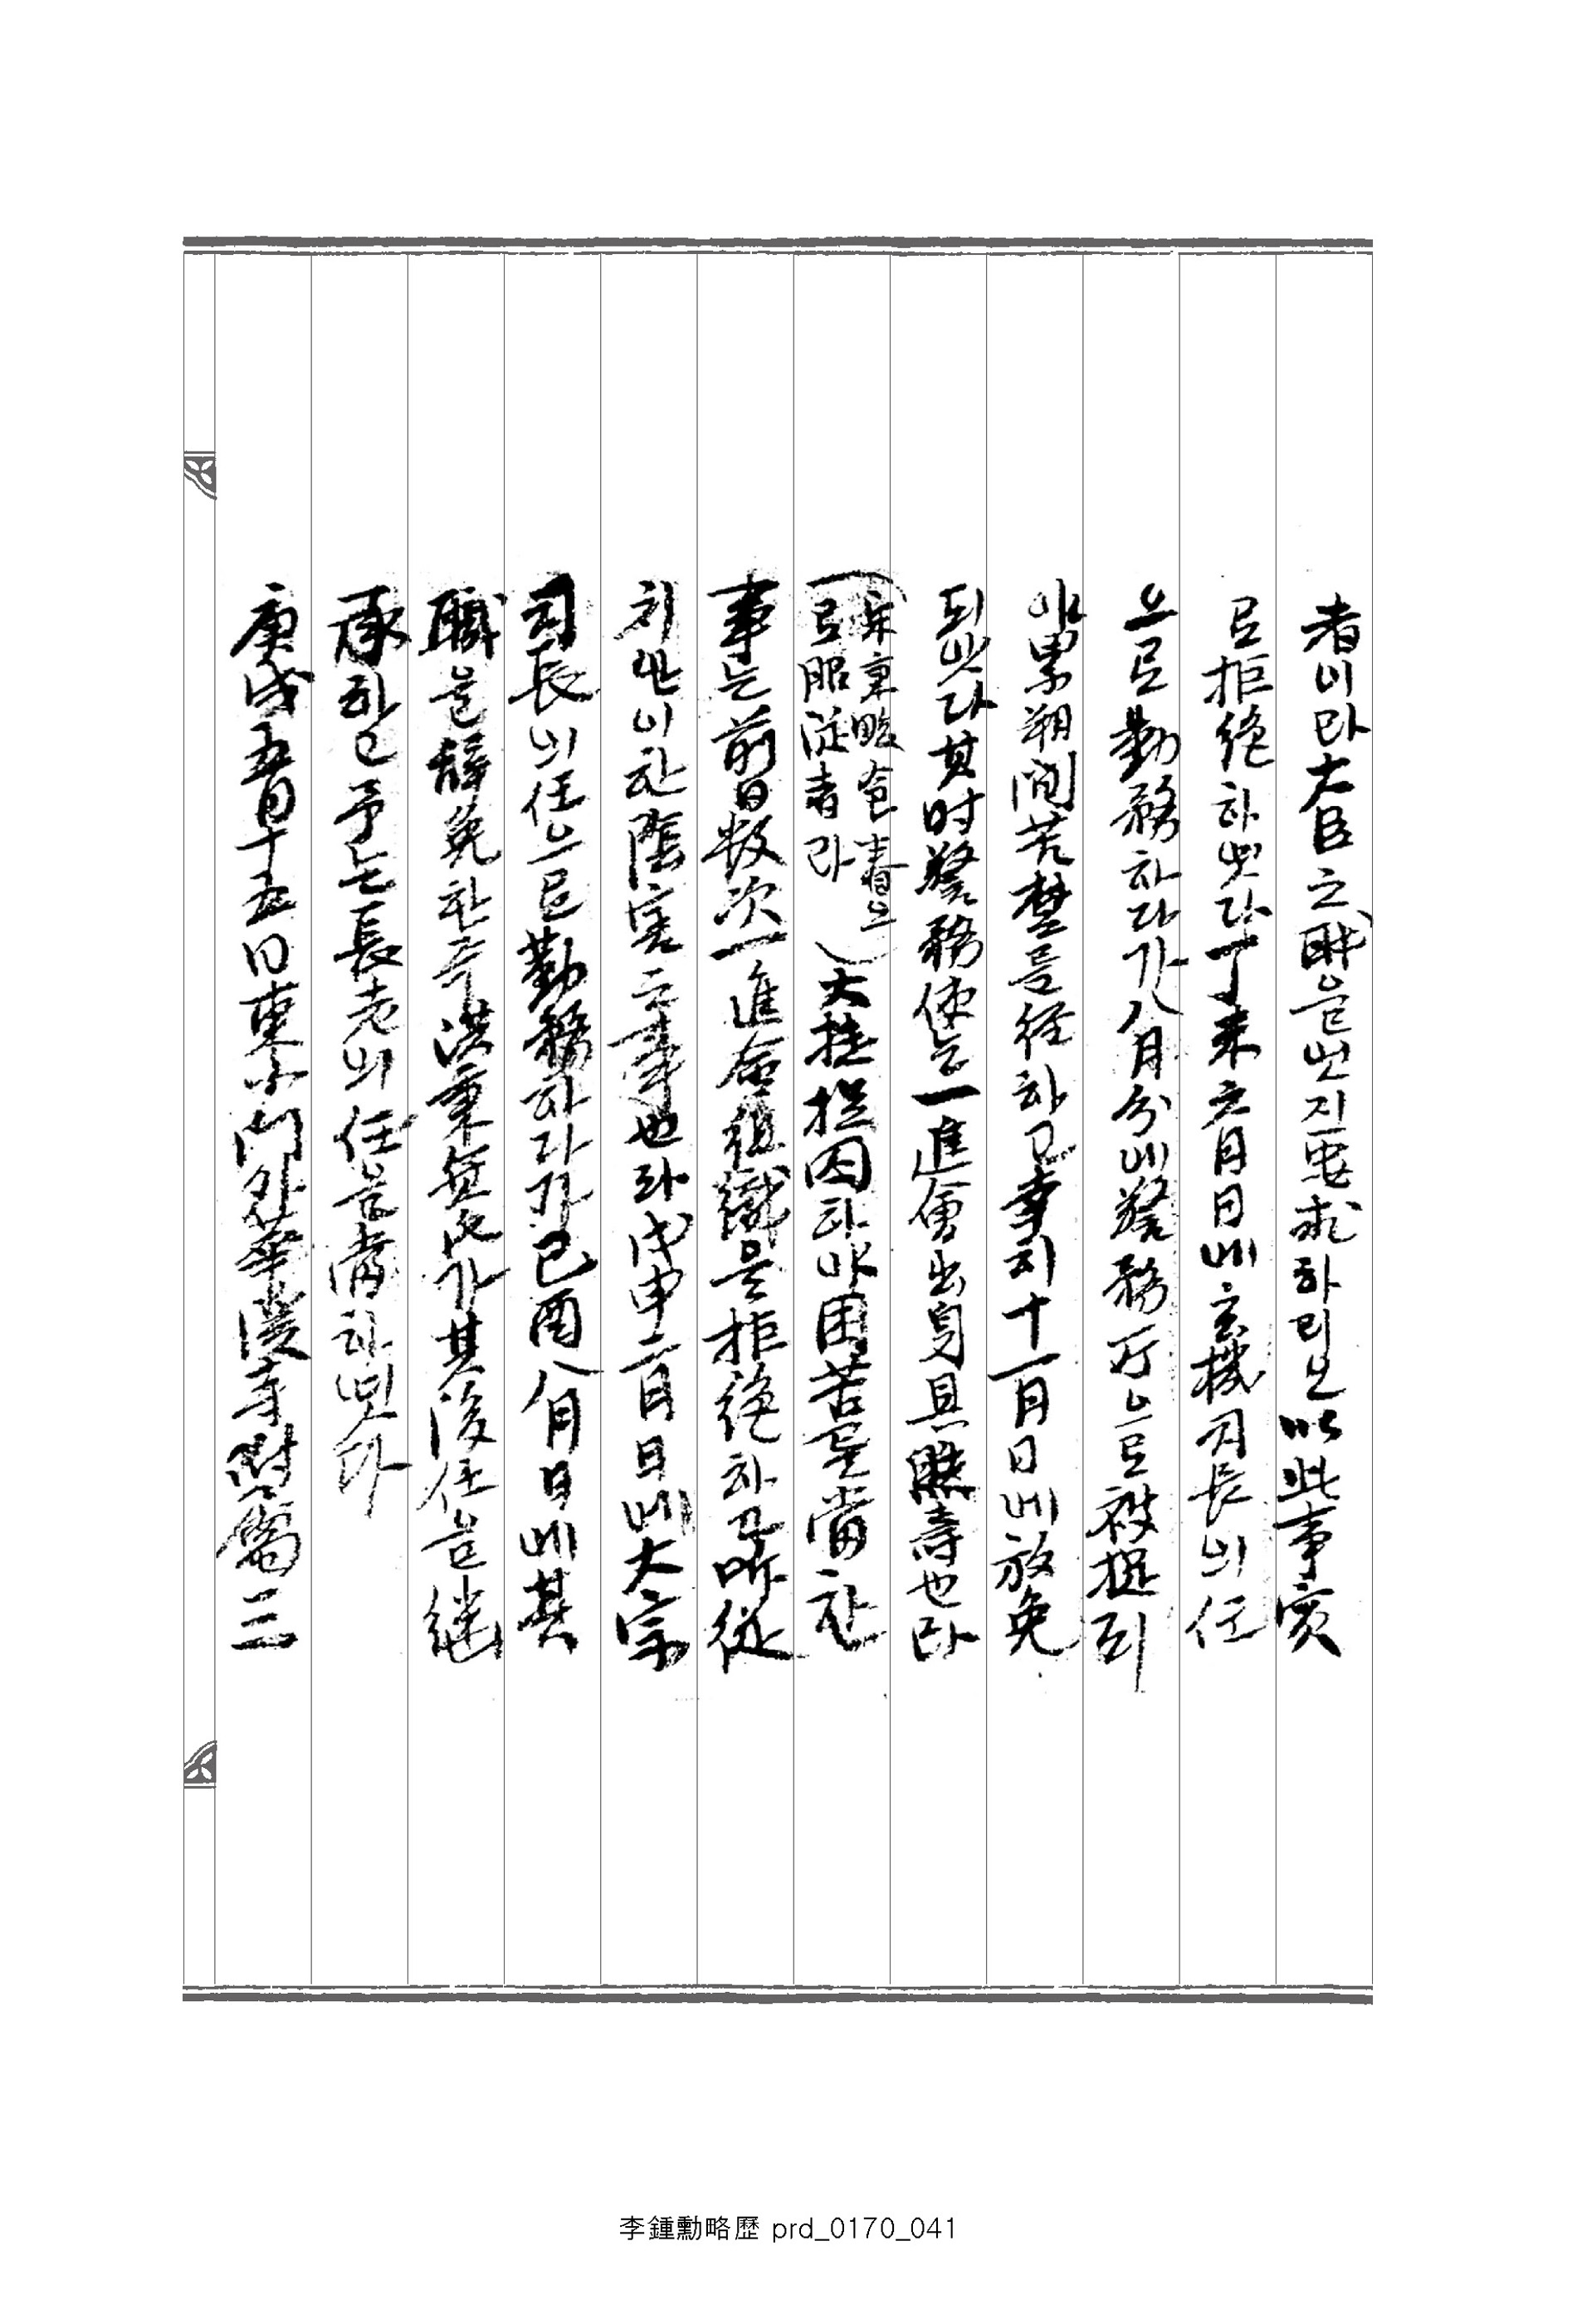 者이라大臣之職을엇지要求하리요以此事實
로拒絶하엿다丁未六月日에玄機司長의任
으로勤務하다가八月分에警務所으로被捉되
야累朔間苦楚를経하고幸히十一月日에放免
되엿다其时警務使는一進會出身具然壽也라
(宋秉畯仓春으
로服從者라)大捷捉囚하야困苦를當한
事는前日数次一進会組織을拒絶하고昨從
치안이한陰害之事也라戊申二月日에大宗
司長의任으로勤務하다가己酉八月日에其
職을辞免한즉洪秉箕氏가其後任을継
承하고予는長老의任을當하엿다
庚戌五月十五日東小門外華溪寺附属三
李鍾勳略歷 prd_0170_041